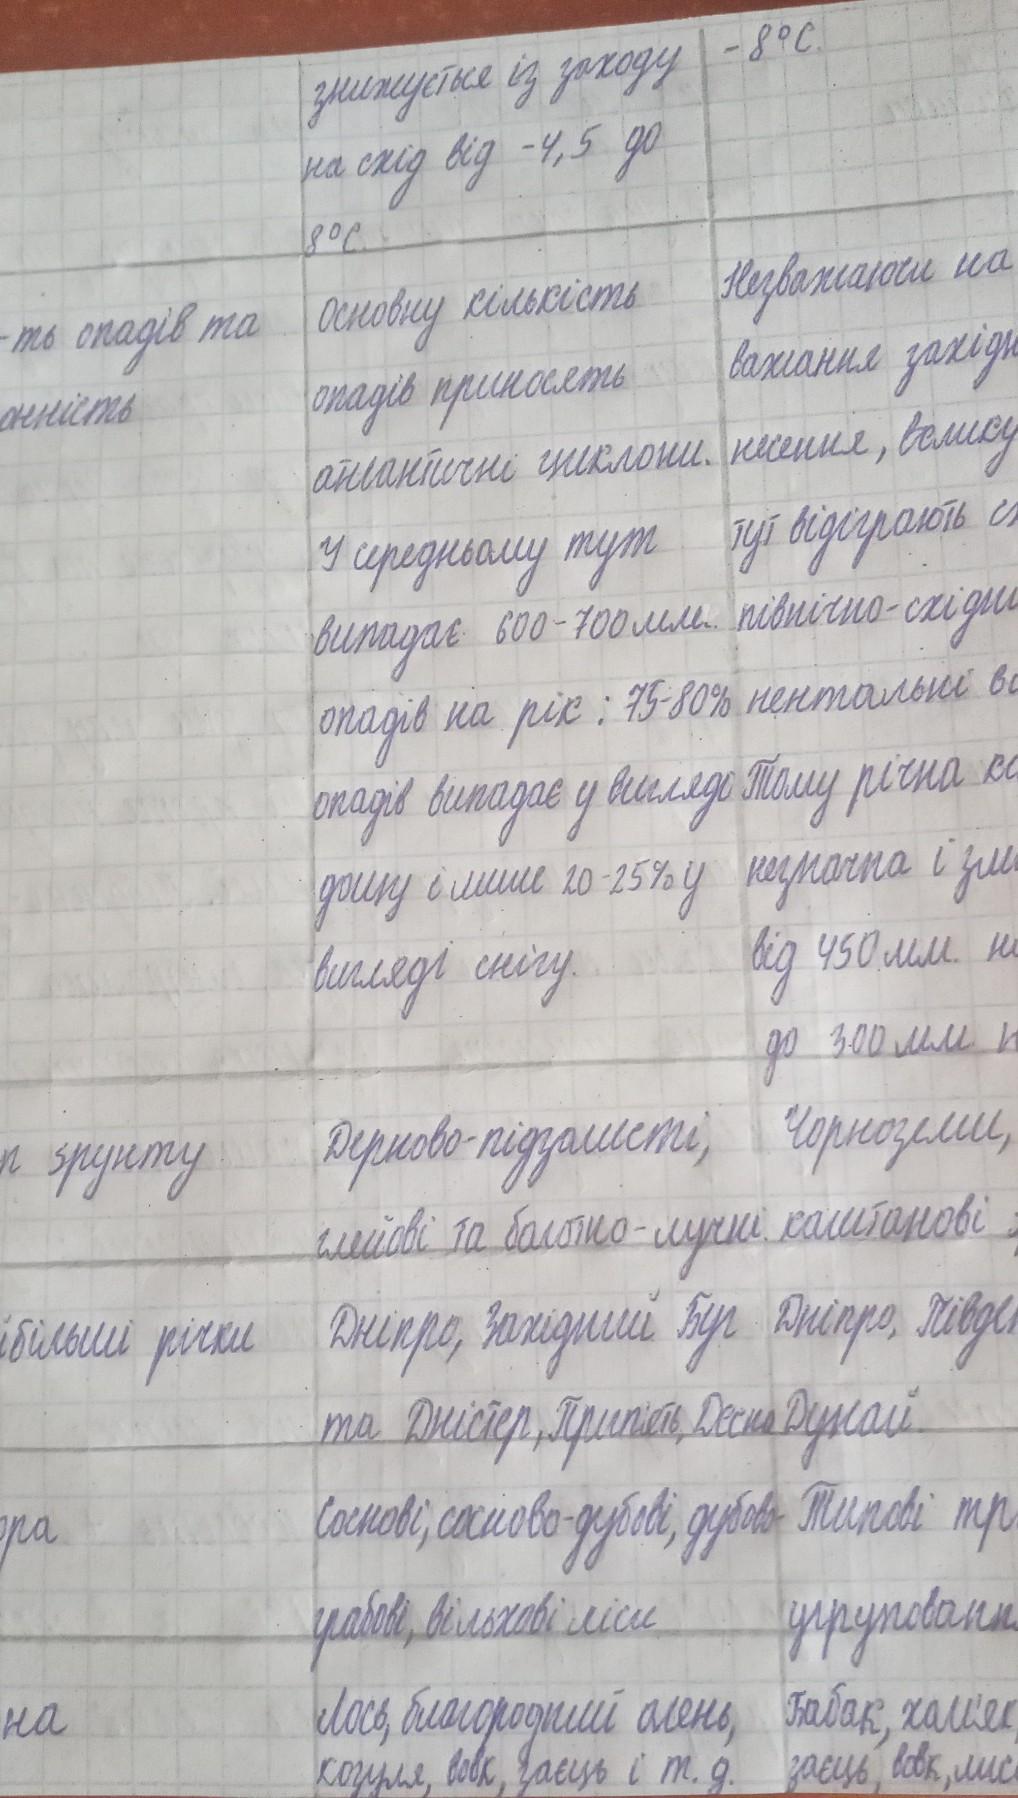 знижується із заходу
на схід від -4,5 до
8°С.
-8°С.
-ть опадів та
Основну кількість
опадів приносять
атлантичні циклони.
У середньому тут
випадає 600-700мм.
опадів на рік : 75-80%
опадів випадає у вигляді
дощу і лише 20-25% у
вигляді снігу.
Незважаючи на
важання західн
несення, велику
тут відіграють
північно-східни
нентальні
Тому річна
незначна і
від 450 мм.
до 300 мм.
п грунту
Дерново-підзолисті,
глейові та болотно-лучні.
Чорноземи,
каштанові
йбільші річки
Дніпро, Західний Буг
та Дністер, Прип'ять, Десна
Дніпро, Півден
Дунай.
ора
Соснові, сосново-дубові, дубово-
грабові, вільхові ліси
Типові
угрупованн
на
Лось, благородний олень,
козуля, вовк, заєць і т. д.
Бабак, хом'як,
заєць, вовк, лис